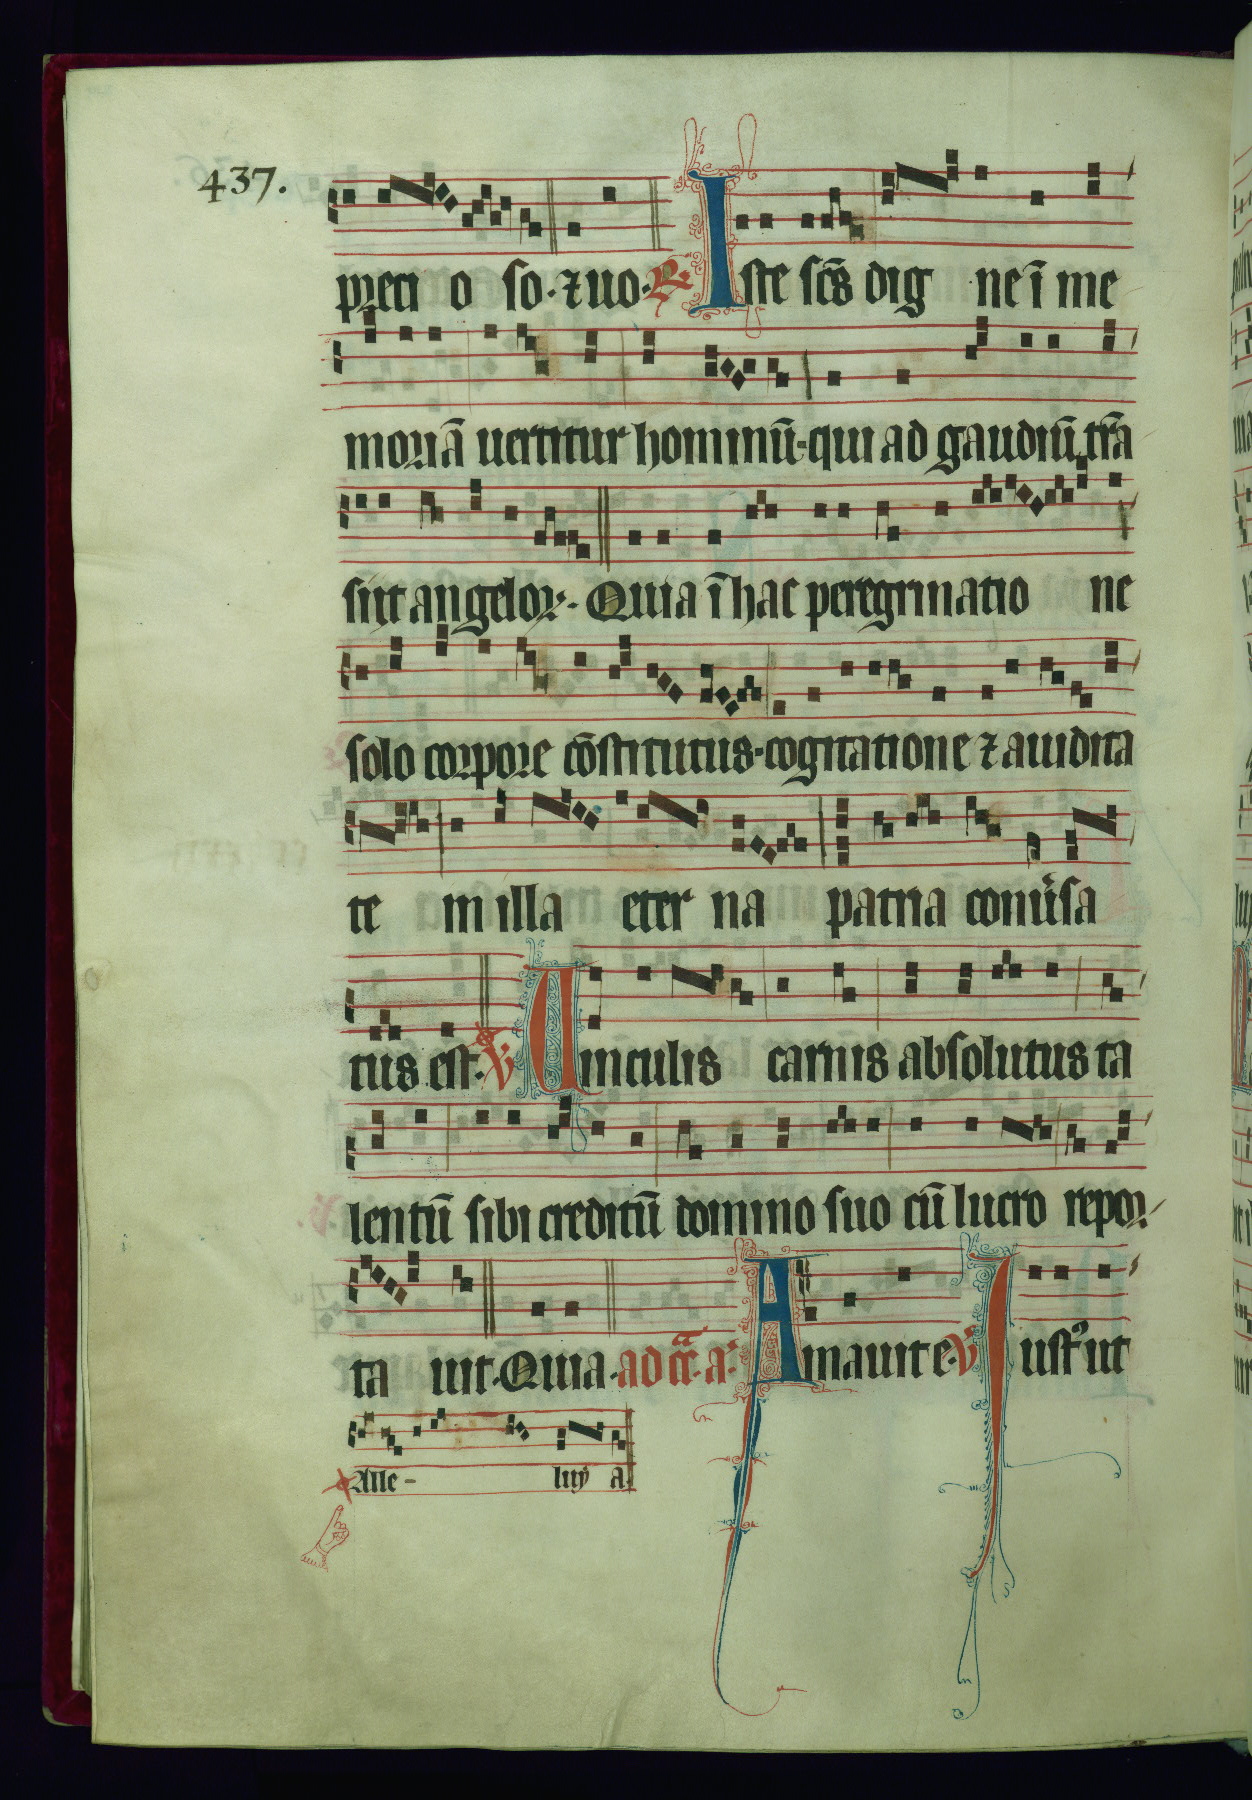 437.
preci o so. ⁊ uo. ℟ Iste scs̄ dig ne ī me
moriā uertitur hominū. qui ad gaudiū trā
siit angeloꝝ. Quia ī hac peregrinatio ne
solo corpore cōstitutus. cogitatione ⁊ auidita
te in illa eter na patria conuͥsa
tus est. ℣ Uinculis carnis absolutus ta
lentū sibi creditū domino suo cū lucro repor
ta uit. Quia. ad cā. a. Amauit e. ℣ Iustꝰ ut
Alle- luy a